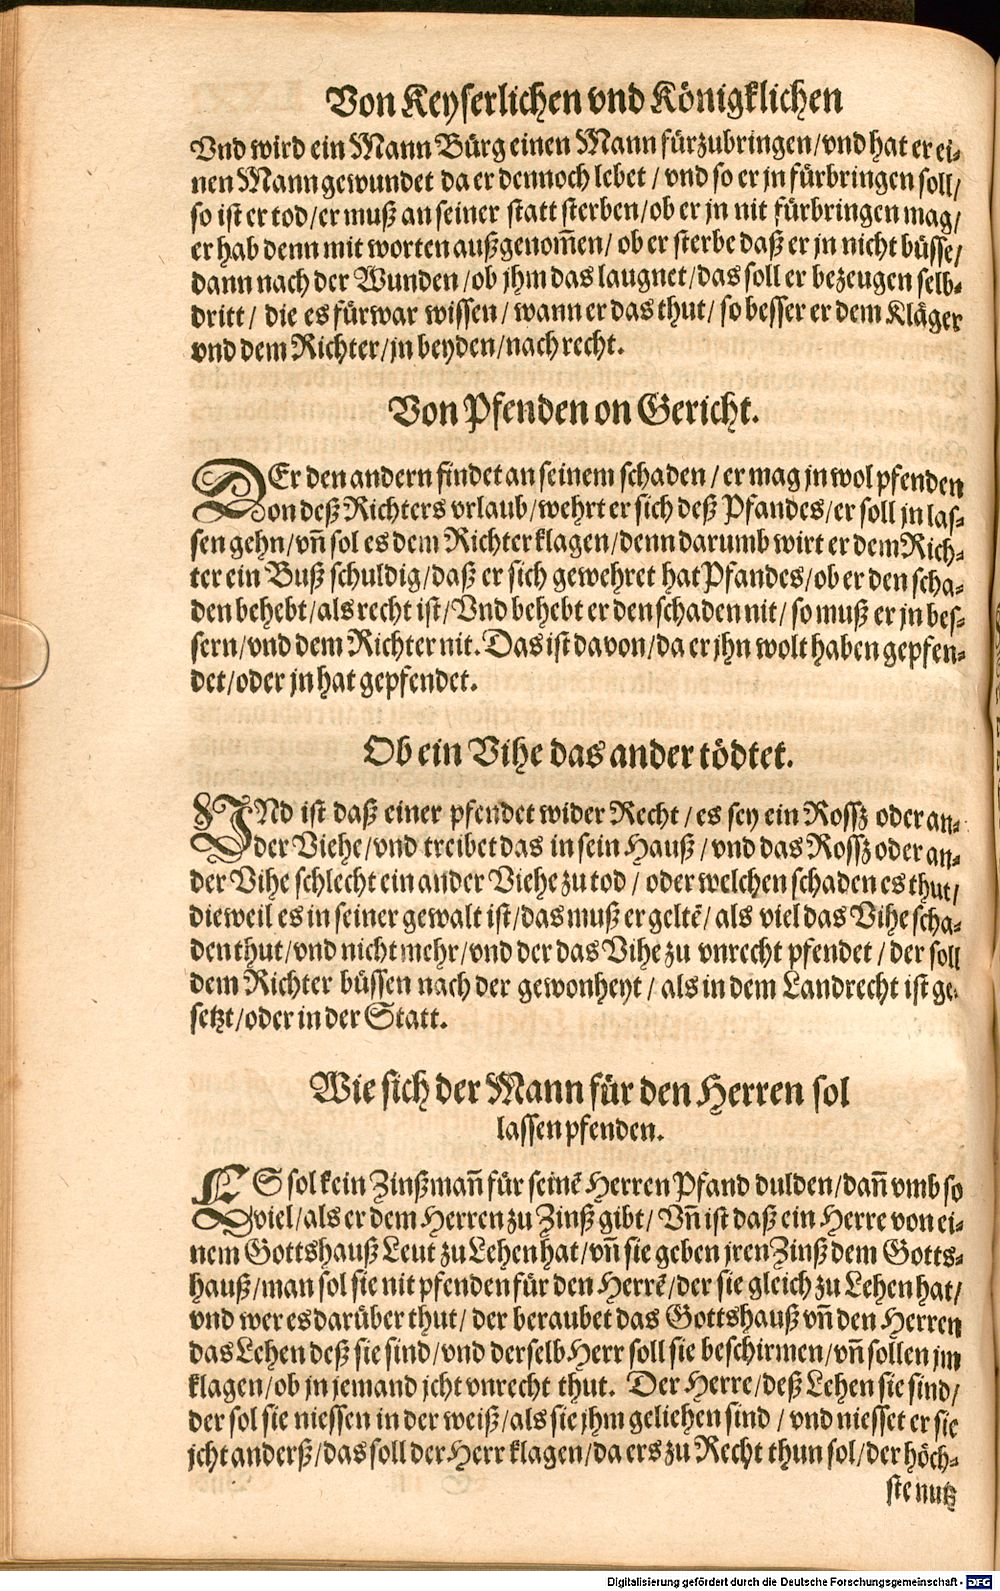 Von Keyserlichen vnd Königklichen
Vnd wird ein Mann Bürg einen Mann fürzubringen/vnd hat er ei-
nen Mann gewundet da er dennoch lebet / vnd so er jn fürbringen soll/
so ist er tod/er muß an seiner statt sterben/ob er jn nit fürbringen mag/
er hab denn mit worten außgenom̃en/ ob er sterbe daß er jn nicht büsse/
dann nach der Wunden /ob jhm das laugnet/das soll er bezeugen selb-
dritt/ die es fürwar wissen/ wann er das thut/ so besser er dem Kläger
vnd dem Richter/jn beyden/nach recht.
Von Pfenden on Gericht.
DEr den andern findet an seinem schaden / er mag jn wol pfenden
on deß Richters vrlaub/wehrt er sich deß Pfandes/er soll jn las-
sen gehn/vñ sol es dem Richter klagen/denn darumb wirt er dem Rich-
ter ein Buß schuldig/daß er sich gewehret hat Pfandes/ob er den scha-
den behebt/als recht ist/Vnd behebt er den schaden nit/ so muß er jn bes-
sern/vnd dem Richter nit. Das ist davon/da er jhn wolt haben gepfen-
det/oder jn hat gepfendet.
Ob ein Vihe das ander tödtet.
VNd ist daß einer pfendet wider Recht / es sey ein Rossz oder an-
der Viehe/vnd treibet das in sein Hauß / vnd das Rossz oder an-
der Vihe schlecht ein ander Viehe zu tod / oder welchen schaden es thut/
dieweil es in seiner gewalt ist/das muß er geltē/ als viel das Vihe scha-
den thut/vnd nicht mehr/vnd der das Vihe zu vnrecht pfendet / der soll
dem Richter büssen nach der gewonheyt / als in dem Landrecht ist ge-
setzt/oder in der Statt.
Wie sich der Mann für den Herren sol
lassen pfenden.
ES sol kein Zinßmañ für seinē Herren Pfand dulden/dañ vmb so
viel/als er dem Herren zu Zinß gibt/ Vñ ist daß ein Herre von ei-
nem Gottshauß Leut zu Lehen hat/vñ sie geben jren Zinß dem Gotts-
hauß/man sol sie nit pfenden für den Herrē/der sie gleich zu Lehen hat/
vnd wer es darüber thut/ der beraubet das Gottshauß vñ den Herren
das Lehen deß sie sind/vnd derselb Herr soll sie beschirmen/vñ sollen jm
klagen/ob jn jemand jcht vnrecht thut. Der Herre/deß Lehen sie sind/
der sol sie niessen in der weiß/als sie jhm geliehen sind / vnd niesset er sie
jcht anderß/das soll der Herr klagen/da ers zu Recht thun sol/der höch-
ste nutz
Digitalisierung gefördert durch die Deutsche Forschungsgemeinschaft - DFG